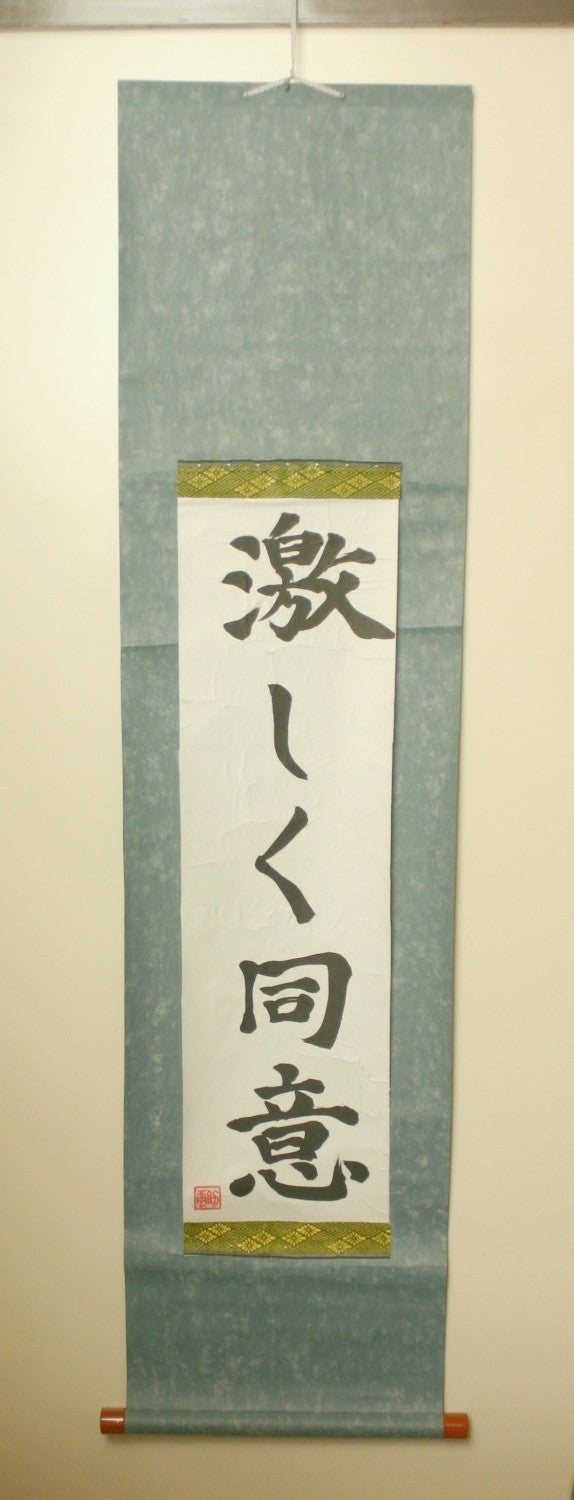 激しく同意